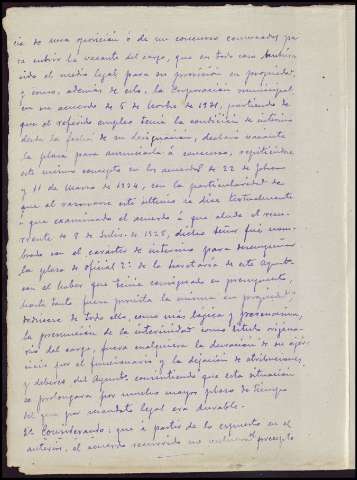 cia de una oposición ó de un concurso convocados pa
ra cubrir la vacante del cargo, que en todo caso hubiera
sido el medio legal para su provisión en propiedad,
y como, además de esto, la Corporación municipal
en su acuerdo de 5 de de 1921, partiendo de
que el referido empleo tenía la condición de interino
desde la fecha de su designación, declaró vacante
la plaza para anunciarla á concurso, repitiéndose
este mismo concepto en los acuerdos de 22 de Febrero
y 11 de Marzo de 1924, con la particularidad de
que al razonarse este último se dice textualmente
"que examinado el acuerdo á que alude el recu-
rrente de 8 de Julio de 1925, dicho señor fué nom-
brado con el carácter de interino para desempeñar
la plaza de oficial 2º de la Secretaría de este Ayuntº
con el haber que tenía consignado en presupuesto,
hasta tanto fuera provista la misma en propiedad",
dedúcese de todo ello, como más lógica y
la presunción de la interinidad como título origina-
rio del cargo, fuera cualquiera la duración de su ejer-
cicio por el funcionario y la dejación de atribuciones
y deberes del Ayuntº consintiendo que esta situación
se prolongara por mucho mayor plazo de tiempo
del que por mandato legal era durable.-
2º Considerando: que á partir de lo expuesto en el
anterior, el acuerdo recurrido no vulnera precepto